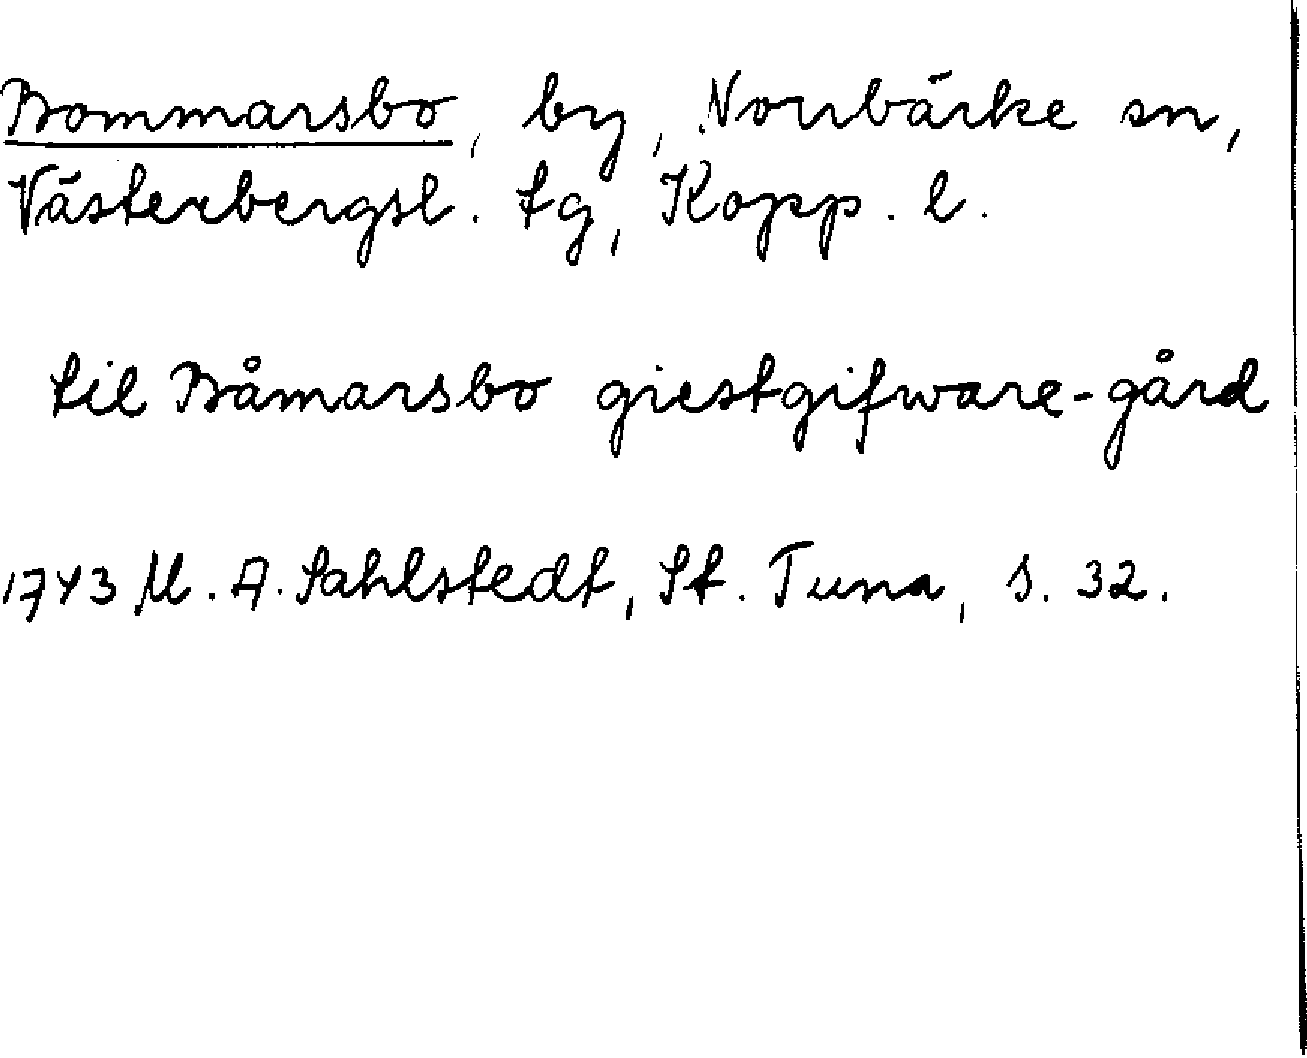 Bommarsbo, by, Norrbärke sn,
Västerbergsl. tg, Kopp. l.
til Båmarsbo giestgifware-gård
1743 M. A. Sahlstedt, St. Tuna, s. 32.